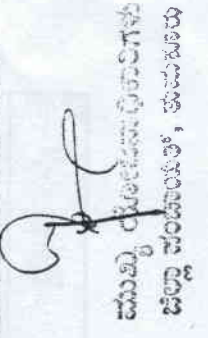 ಮುಖ್ಯ ಯೋಜನಾಧಿಕಾರಿಗಳು
ಜಿಲ್ಲಾ ಪಂಚಾಯತ್, ತುಮಕೂರು